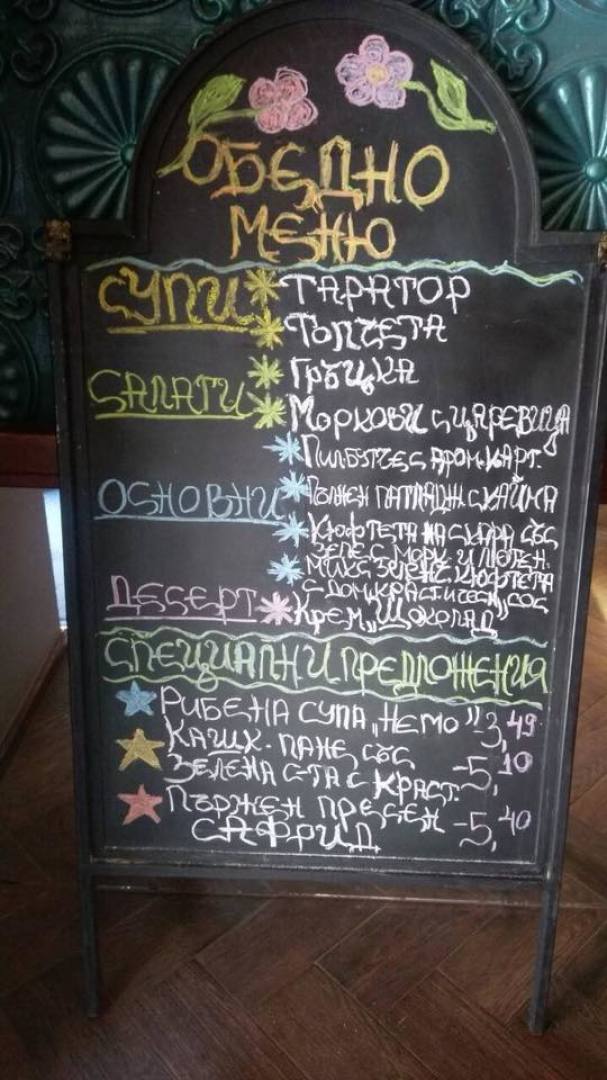 ОБЕДНО
МЕНЮ
СУПИ * ТАРАТОР
* ТОПЧЕТА
САЛАТИ * ГРЪЦКА
* МОРКОВИ С ЦАРЕВИЦА
* ПИЛ.БУТЧЕ С АРОМ.КАРТ.
ОСНОВНИ * ПЪЛНЕН ПАТЛАДЖ. С КАЙМА
* КЮФТЕТА НА СКАРА СЪС
ЗЕЛЕ С МОРК. И ЛЮТЕН.
* МИКС ЗЕЛЕНЧ. КЮФТЕТА
С ДОМ.КРАСТ.
ДЕСЕРТ * КРЕМ „ШОКОЛАД"
СПЕЦИАЛНИ ПРЕДЛОЖЕНИЯ
РИБЕНА СУПА „НЕМО" - 3,49
КАШК. ПАНЕ СЪС
ЗЕЛЕНА С-ТА С КРАСТ. - 5,10
ПЪРЖЕН ПРЕСЕН - 5,40
САФРИД